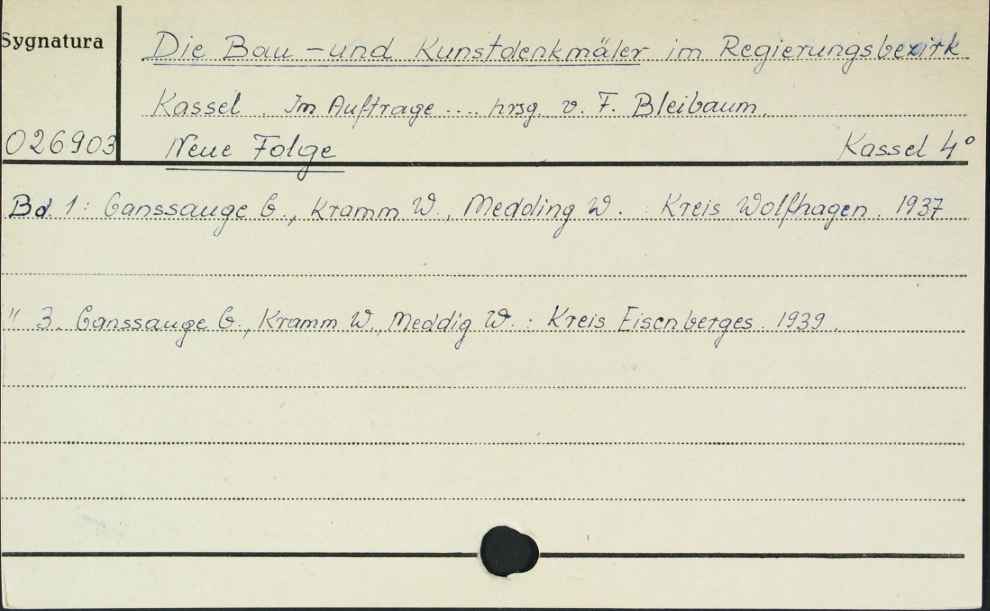 Sygnatura
Die Bau - und Kunstdenkmäler im Regierungsbezirk
Kassel. Im Auftrage .... hrsg. v. F. Bleibaum.
026903 Neue Folge Kassel 4°
Bd. 1: Ganssauge G., Kramm W., Medding W. : Kreis Wolfhagen. 1937
" 3. Ganssauge G., Kramm W., Meddig W. : Kreis Eisenberges. 1939.